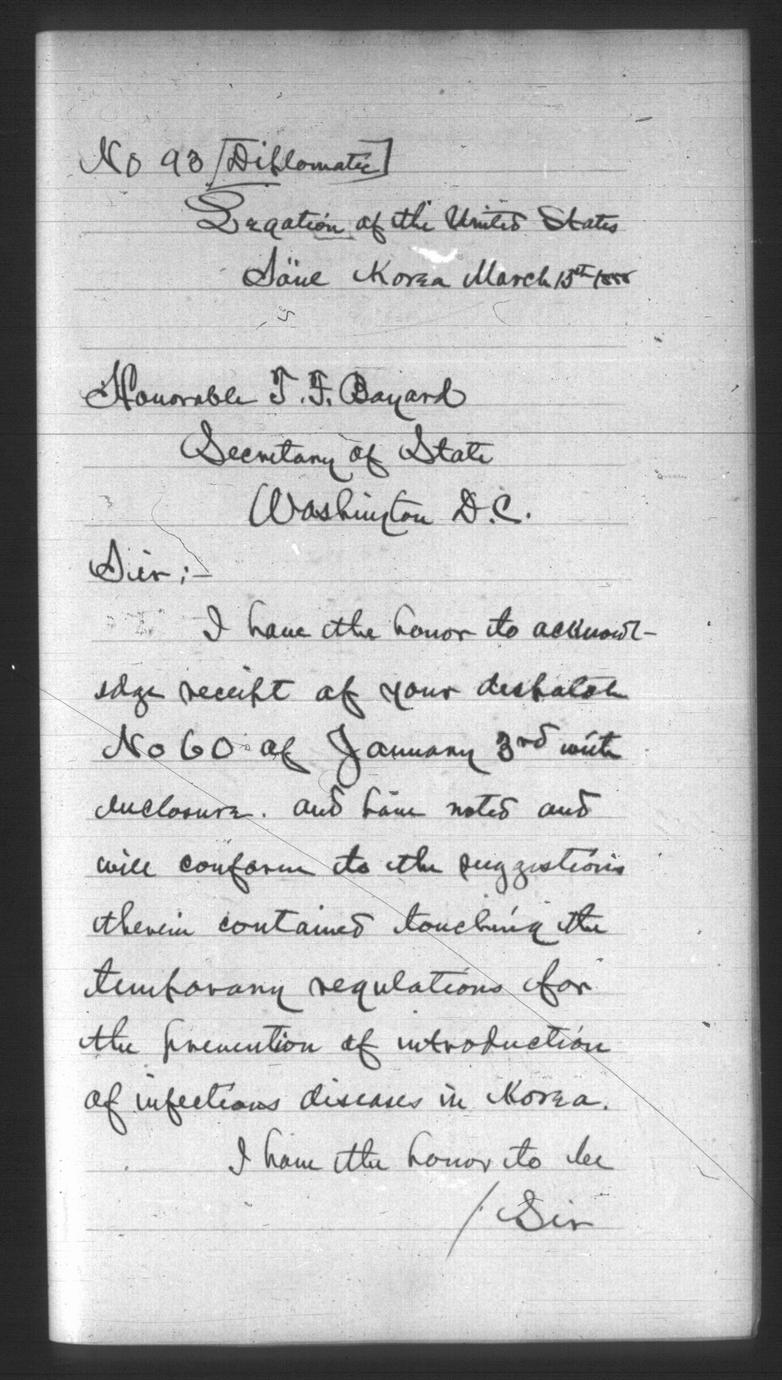 No 93 [Diplomatic]
Legation of the United States
Söul Korea March 15th 1888
Honorable T. F. Bayard
Secretary of State
Washington D.C.
Sir:-
I have the honor to acknowl-
edge receipt of your despatch
No 60 of January 3rd with
enclosure. and have noted and
will conform to the suggestions
therein contained touching the
temporary regulations for
the prevention of introduction
of infectious diseases in Korea.
I have the honor to be
/ Sir